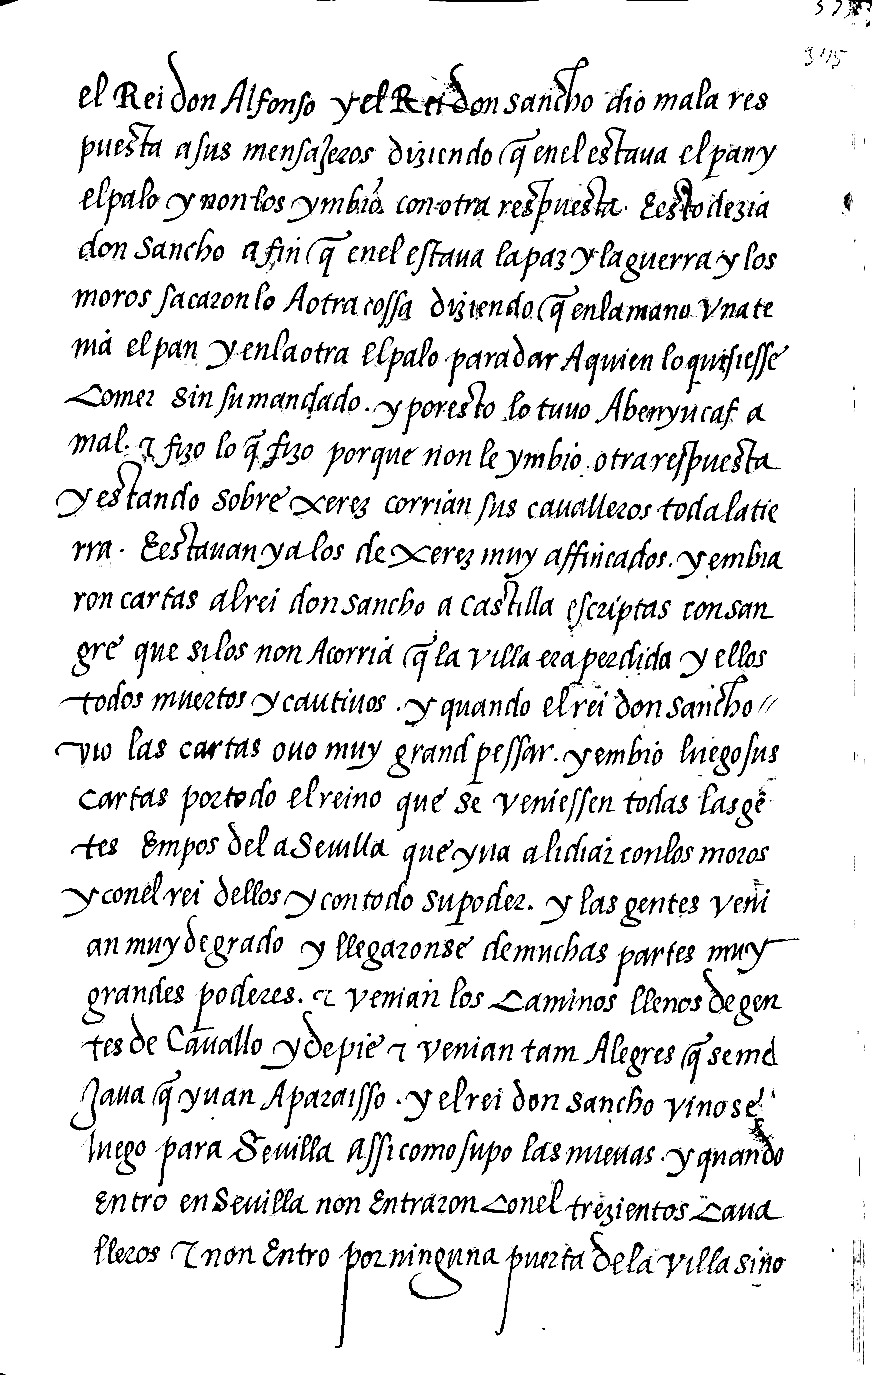 345
el Rei don Alfonso y el Rei don sancho dio mala res
puesta a sus mensajeros diziendo q̃ enel estaua el pan y
el palo y non los ymbio con otra respuesta. E esto dezia
don sancho a fin q̃ enel estaua la paz y la guerra y los
moros sacaron lo A otra cossa diziendo q̃ en la mano vna te
nia el pan y en la otra el palo para dar A quien lo quisiesse
comer sin su mandado. y por esto lo tuuo Abenyucaf a
mal. ⁊ fizo lo q̃ fizo porque non le ymbio otra respuesta
y estando sobre xerez corrian sus caualleros toda la tie
rra. E estauan ya los de xerez muy affincados. y embia
ron cartas al rei don sancho a castilla escriptas con san
gre que si los non Acorria q̃ la villa era perdida y ellos
todos muertos y cautiuos. y quando el rei don sancho
vio las cartas ouo muy grand pessar. y embio luego sus
cartas por todo el reino que se veniessen todas las gẽ
tes Empos del a Sevilla que yua a lidiar con los moros
y con el rei dellos y con todo su poder. y las gentes veni
an muy de grado y llegaronse de muchas partes muy
grandes poderes. ⁊ venian los caminos llenos de gen
tes de Cauallo y de pie ⁊ venian tam Alegres q̃ seme
Jaua q̃ yuan A paraisso. y el rei don sancho vinose
luego para Sevilla assi como supo las nueuas. y quando
Entro en Sevilla non Entraron con el trezientos Caua
lleros ⁊ non Entro por ninguna puerta de la villa sino